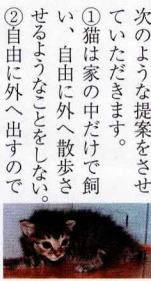 次のような提案をさせ
ていただきます。
①猫は家の中だけで飼
い、自由に外へ散歩さ
せるようなことをしない。
②自由に外へ出すので